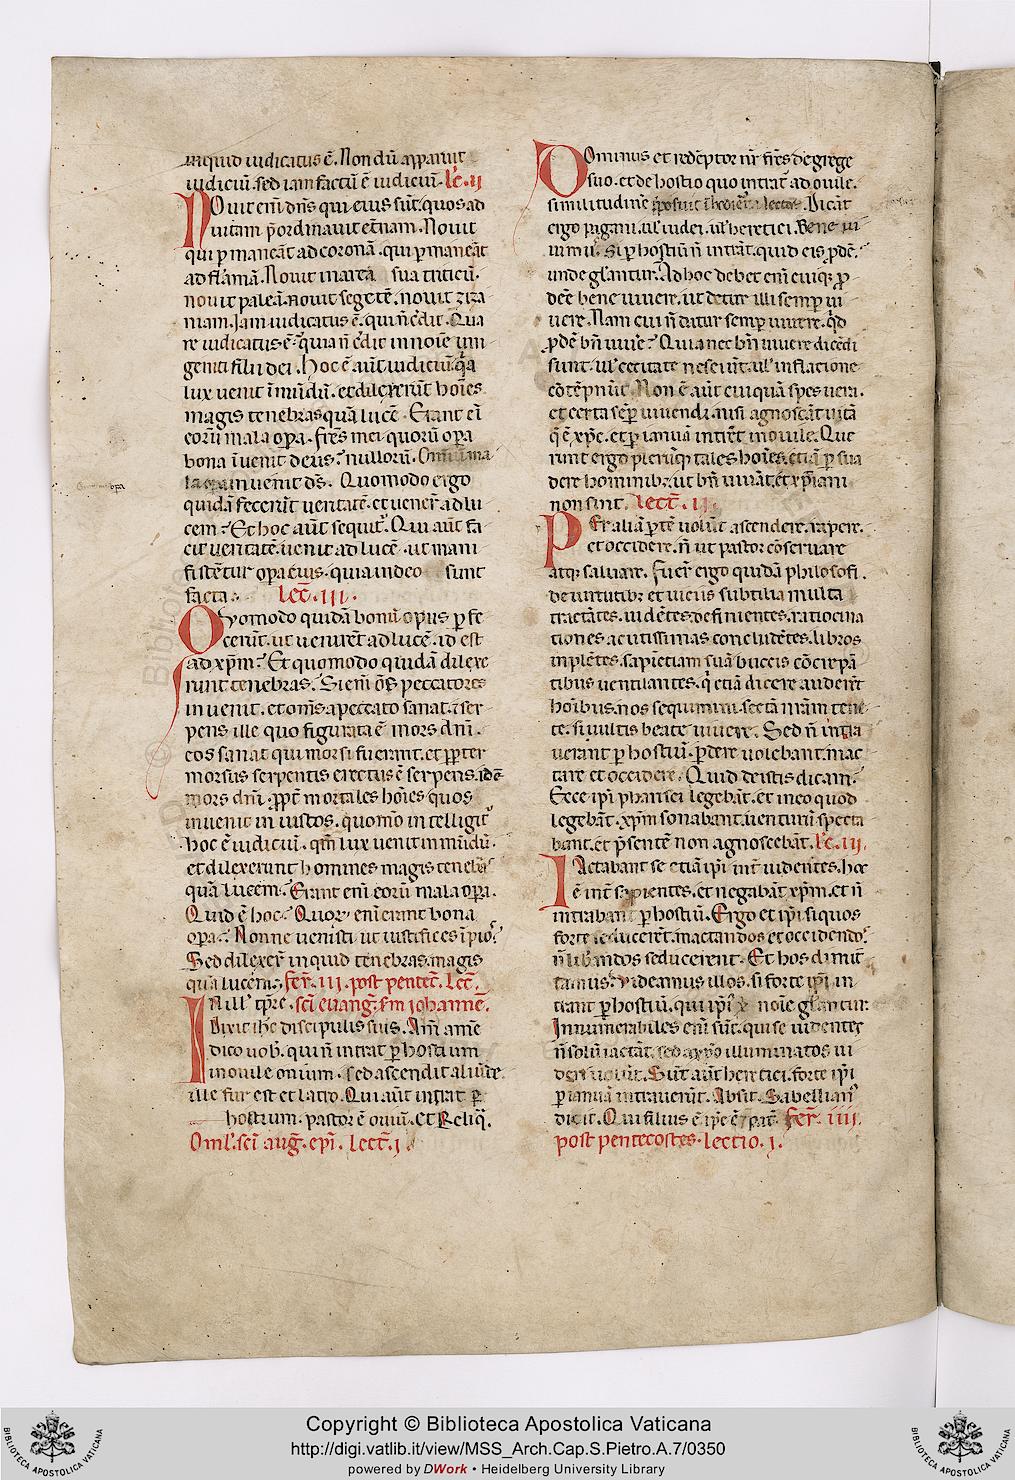 inquid iudicatus ē. Non dū apparuit
iudiciū. sed iam factū ē iudiciū. lc̄. ii
Nouit eni dn̄s qui eius sūt. quos ad
uitam p̄ordinauit et̄nam. Nouit
qui pmaneāt ad coronā. qui pmaneāt
ad flāmā. Nouit in area sua triticū.
nouit paleā. nouit segetē. nouit ziza
niam. Iam iudicatus ē. qui n̄ c̄dit. Qua
re iudicatus ē. quia n̄ c̄dit in noīe uni
geniti filii dei. Hoc ē aūt iudiciū. q̄a
lux uenit ī mūdū. et dilexerūt hoīes
magis tenebras quā lucē. Erant eī
eorū mala opa. fr̄es mei quorū opa
bona īuenit deus? nullorū. Omīu ma
la opa inuenit ds̄. Quomodo ergo
quidā fecerūt ueritatē. et uener̄ ad lu
cem? Et hoc aūt sequit̄. Qui aūt fa
cit ueritatē. uenit ad lucē. ut mani
fistētur opa eius. quia in deo sunt
facta. lect̄. iii.
Quomodo quidā bonū opus p fe
cerūt. ut uenirēt ad lucē. id est
ad xp̄m? Et quomodo quidā dilexe
runt tenebras? Si enī oēs peccatores
inuenit. et omēs a peccato sanat. ī ser
pens ille quo figurata ē mors dnī.
eos sanat qui morsi fuerant. et ppter
morsus serpentis erectus ē serpens. idē
mors dnī. ppt̄ mortales hoīes quos
inuenit in iustos. quomō intelligit̄
hoc ē iudiciū. qm̄ lux uenit in mūdū.
et dilexerunt hommes magis tenebr̄
quā lucem. Erant enī eorū mala opa.
Quid ē hoc? Quor enī erant bona
opa? Nonne uenisti ut iustifices īpio?
Sed dilexer̄ inquid tenebras. magis
quā lucem. fer̄. iii. post pentec̄. Lec̄.
In ill' tp̄re. sc̄i euanḡ. s̄m iohannē.
Dixit ih̄c discipulis suis. Am̄ amē
dico uob'. qui n̄ intrat p hostium
in ouile ouium. sed ascendit aliūde.
ille fur est et latro. Qui aūt intrat p
hostium. pastor ē ouiū. Et Reliq̄.
Oml'. sc̄i auḡ. epī. Lect̄. i.
Dominus et redēptor nr̄ fr̄es de grege
suo. et de hostio quo intrat̄ ad ouile.
similitudinē pposuit Dicāt
ergo pagani. ul' iudei. ul' heretici. Bene ui
uimus. Si p hostiū n̄ intrāt. quid eis pdē.
unde gl'antur? Ad hoc debet enī cuiq; p
dēe bene uiuere. ut detur illi semp ui
uere. Nam cui n̄ datur semp uiuere. qd̄
pdē bn̄ uiue? Quia nec bn̄ uiuere dicēdi
sunt. ul' cecitate nesciūt. ul' inflacione
cōtēpnūt. Non ē aūt cuiquā spes uera.
et certa sēp uiuendi. nisi agnoscāt uitā
q̄ ē xp̄c. et p ianuā intrēt in ouile. Que
runt ergo plerūq; tales hoīes. etiā p sua
dere hominib; ut bn̄ uiuāt. et xpīani
non sint. Lect̄. ii.
Per aliā ptē uolūt ascendere. rapere.
et occidere. n̄ ut pastor cōseruare
atq; saluare. Fuer̄ ergo quidā philosofi.
de uirtutib; et uiciis subtilia multa
tractātes. uidētes. definientes. ratiocina
tiones acutissimas concludētes. libros
inplētes. sapiētiam suā buccis cōcrepā
tibus uentilantes. q̄ etiā dicere auderēt
hoībus. nos sequimini. sectā nrām tene
te. si uultis beate uiuere. Sed n̄ intra
uerant p hostiū. pdere uolebant. mac
tare et occidere. Quid de istis dicam?
Ecce ipī pharisei legebāt. et in eo quod
legebāt. xp̄m sonabant. uenturū specta
bant. et p̄sentē non agnoscebāt. lc̄. iii.
Iactabant se etiā ipī int̄ uidentes. hoc
ē int̄ sapientes. et negabāt xp̄m. et n̄
intrabant p hostiū. Ergo et ipī si quos
forte seducerēt. mactandos et occidendo?
n̄ libandos seducerent. Et hos dimit̄
tamus. uideamus illos. si forte ipī in
trant p hostiū. qui ipī x̄ noīe gl'antur.
Innumerabiles enī sūt. qui se uidentes
n̄ solū iactāt. sed a xpō illuminatos ui
deri uolūt. Sūt aūt heretici. forte ipī
p ianuā intrauerūt. Absit. Sabellian?
dicit. Qui filius ē ipē ē pat̄. fer̄. iiii.
post pentecostes. lectio. i.
Copyright © Biblioteca Apostolica Vaticana
http://digi.vatlib.it/view/MSS_Arch.Cap.S.Pietro.A.7/0350
powered by DWork • Heidelberg University Library
BIBLIOTECA APOSTOLICA VATICANA
BIBLIOTECA APOSTOLICA VATICANA